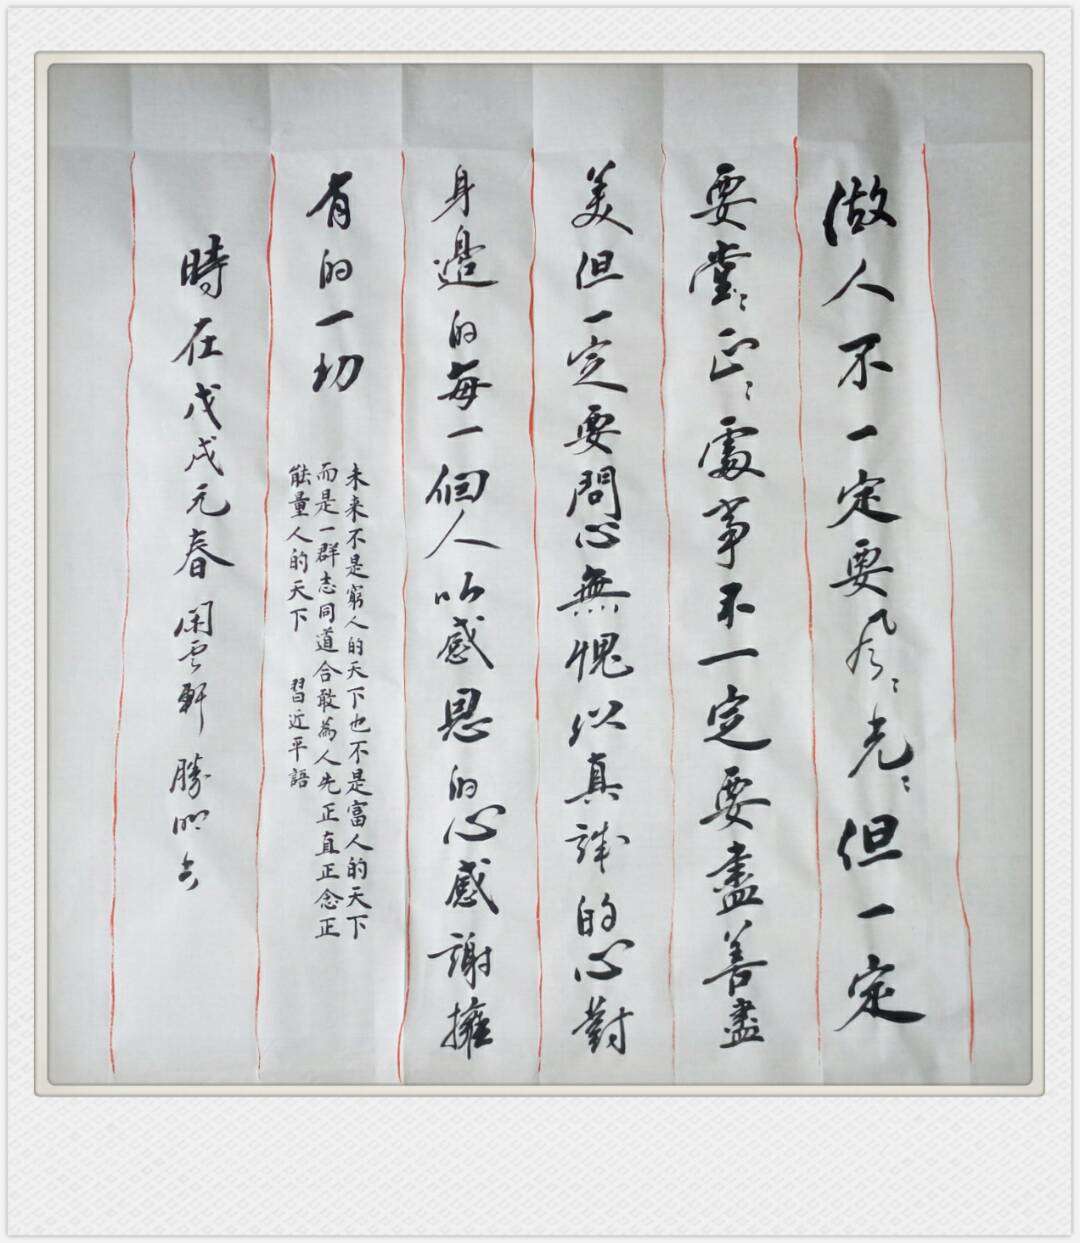 做人不一定要風〻光〻但一定
要堂〻正〻處事不一定要盡善盡
美但一定要問心無愧以真誠的心對
身邊的每一個人以感恩的心感謝擁
有的一切
未来不是窮人的天下也不是富人的天下
而是一群志同道合敢為人先正直正念正
能量人的天下 習近平語
時在戊戌元春 閑雲軒 勝明書